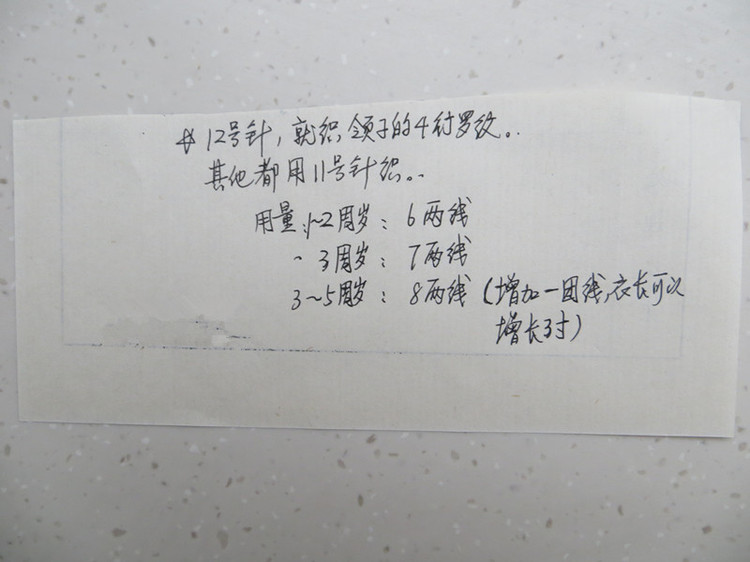 12号针，就织领子的4行罗纹。
其他都用11号针织。
用量：1~2周岁：6两线
~3周岁：7两线
3~5周岁：8两线（增加一团线，衣长可以
增长3寸）